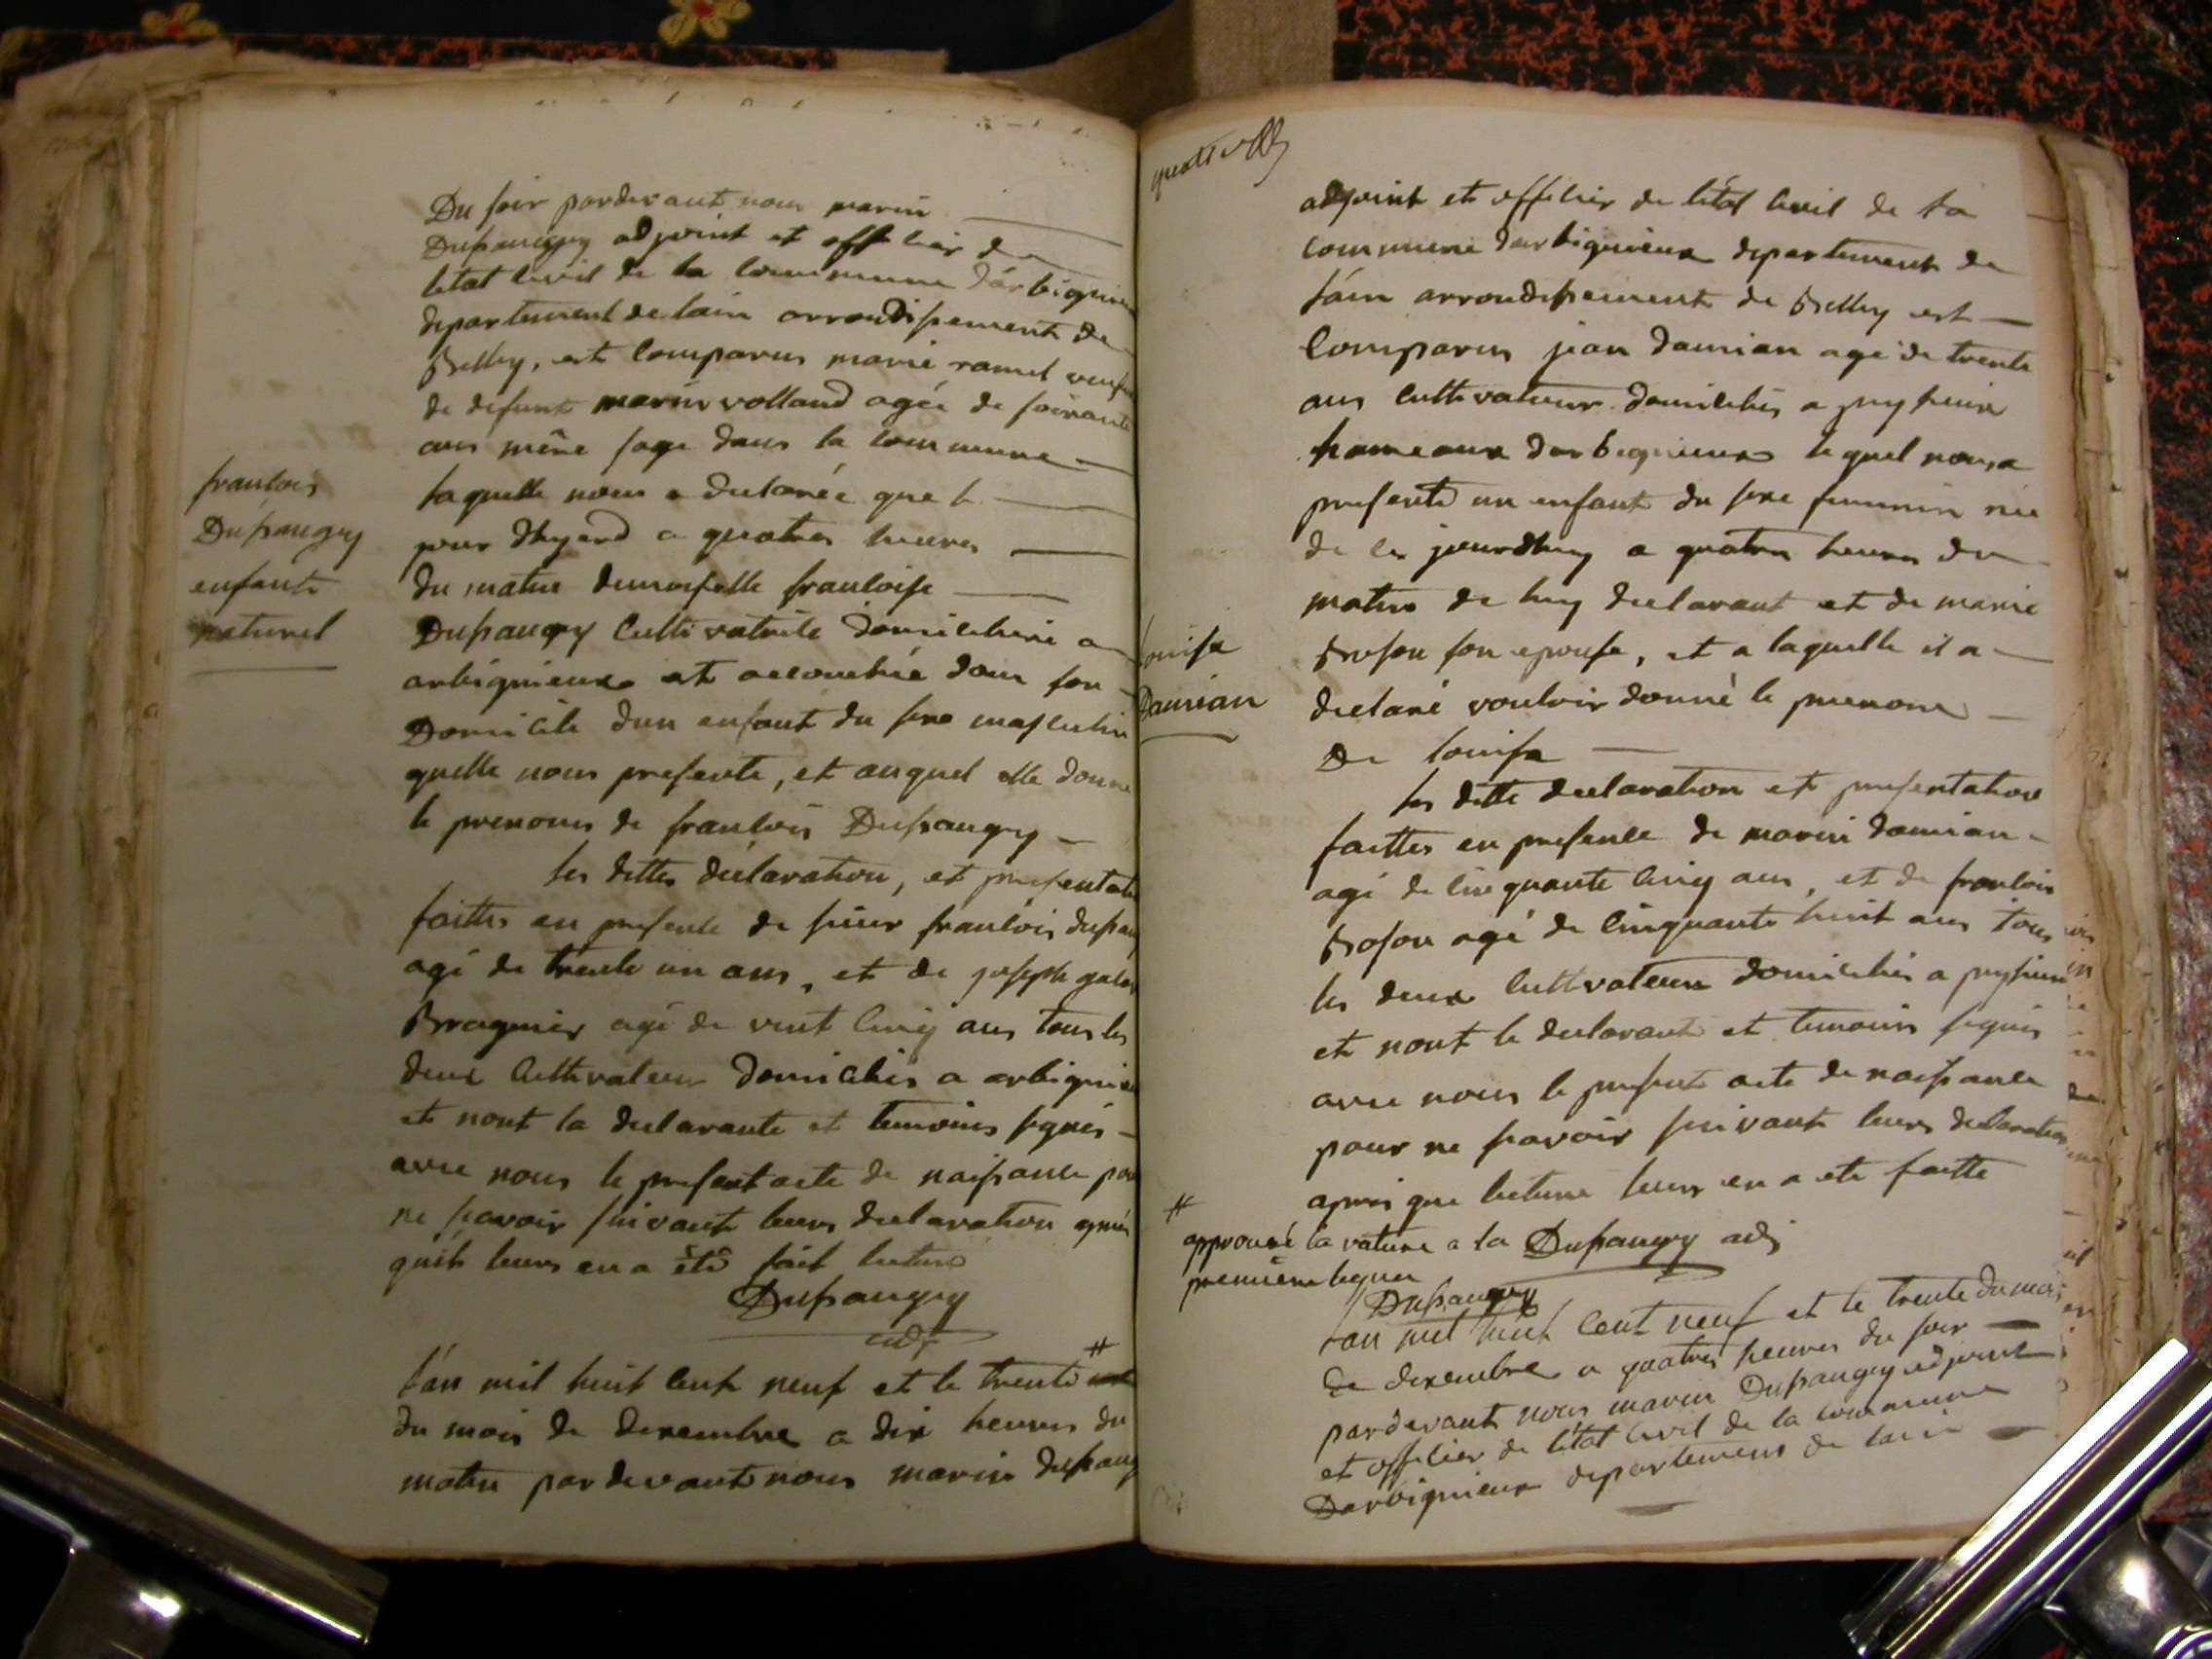 Du soir pardevant nous marin
Dupaugey adjoint et officier de
letat Civil de la Commune d'árbignieu
departement de lain arrondissement de
Belley, est Comparus marie ramel veufve
de defunt marin volland agée de soixante
ans mêre sage dans la commune
laquelle nous a declarée que le
jour dhyerd a quatres heures
du matin demoiselle francoise
Dupaugey Cultivatrice domicilieé a
arbignieux est accouchée dans son
Domicile dun enfant du sexe masculin
quelle nous presente, et auquel elle donne
le prenoms de francois Dupaugey
les dittes déclaration, et presentation
faittes en presence de sieur francois dupau
agé de trente un ans, et de joseph galon
Bragnier agé de vint cinq ans tous les
deux Cultivateur domiciliés a arbignieu
et nont la declarante et temoins signés
avec nous le present acte de naissance pour
ne scavoir suivant leurs declaration aprés
quils leurs en a été fait lecture
Dupaugey
adj
francois
Dupaugey
enfant
naturel
L'an mil huit cent neuf et le trente #
du mois de decembre a dix heures du
matin pardevant nous marin dupaug
adjoint et officier de létat Civil de la
commune darbignieux departement de
láin arrondissement de Belley est
Comparus jean damian agé de trente
ans Cultivateur domiciliés a peyzieux
hameaux darbignieux lequel nous a
presenté un enfant du sexe feminin née
de ce jourdhuy a quatre heures du
matin de luy declarant et de marie
Broson son epouse, et a laquelle il a
declaré vouloir donné le prenom
De louise
louise
Damian
les ditte declaration et presentation
faittes en presence de marin damian
agé de cinquante cinq ans, et de francois
Broson agé de Cinquante huit ans tous
les deux Cultivateurs domiciliés a peyzieux
et nont le declarant et temoins signés
avec nous le present acte de naissance
pour ne scavoir suivant leurs declaration
apres que lecture leurs en a ete faitte
Dupaugey adj
#
approuvé la rature a la
premiere ligne
Dupaugey
Lan mil huit Cent neuf et le trente du mois
de decembre a quatres heures du soir
pardevant nous marin Dupaugey adjoint
et officier de létat Civil de la commune
Darbignieux departement de lain